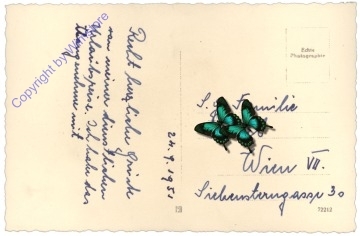 Copyright by Wien-Store
Recht herzliche Grüße
von meiner dienstlichen
Arbeitsreise. Ich habe das
Angenehme mit
24.9.1951
Echte
Photographie
S.
Familie
Wien VII.
Siebensterngasse 30
72212